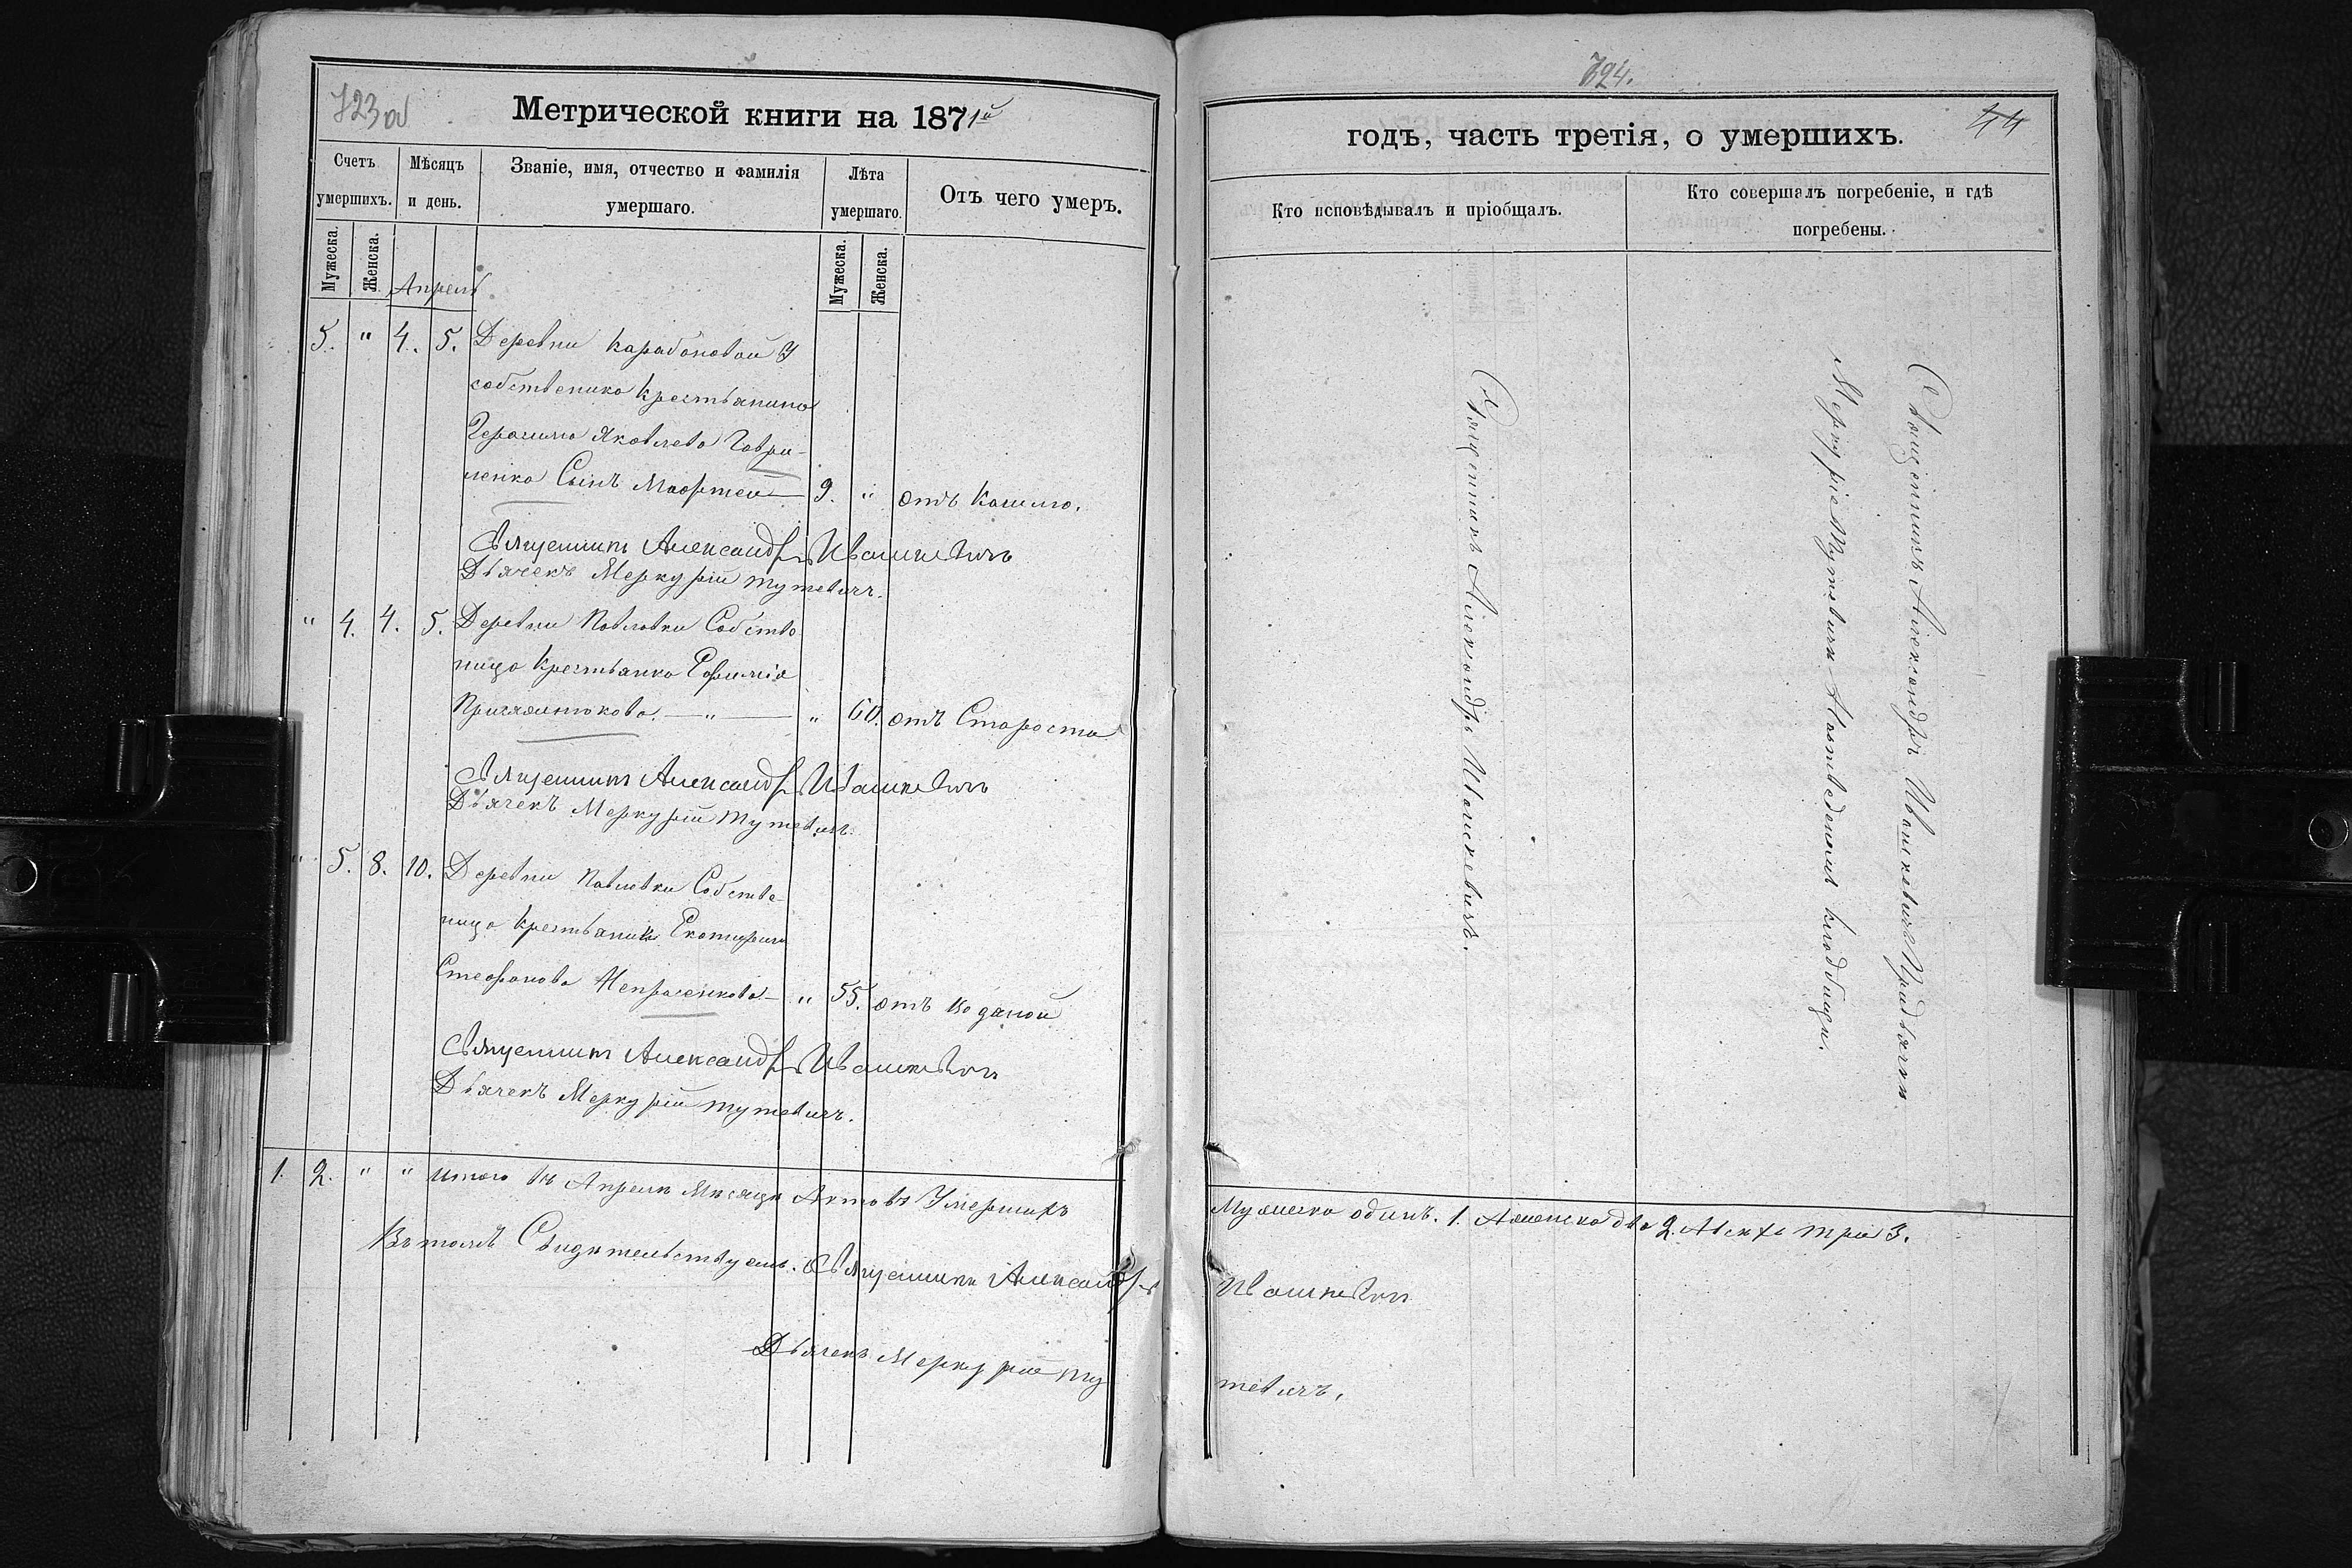 723 об
Метрической книги на 1871й
Счетъ умершихъ.
Мѣсяцъ и день.
Званіе, имя, отчество и фамилія умершаго.
Лѣта умершаго.
Отъ чего умеръ.
Мужеска.
Женска.
Мужеска.
Женска.
Апрель
5. " 4. 5. Деревни Карабановой
собственика Крестьянина
Герасима Яковлева Гаври-
ленка Сынъ 9. " отъ Кашлю.
Священникъ Александръ Ивашкевичъ
Дьячекъ Меркурій Тутевичъ.
" 4. 4. 5. Деревни Павловки Собстве
ница Крестьянка Ефимія
" 60. отъ Старости
Священникъ Александръ Ивашкевичъ
Дьячекъ Меркурій Тутевичъ.
" 5. 8. 10. Деревни Павловки Собстве-
ница Крестьянка Екатерина
Стефанова " 55. отъ водяной
Священникъ Александръ Ивашкевичъ
Дьячекъ Меркурій Тутевичъ.
1. 2. " " Итого въ Апреле Месяце Актовъ Умершихъ
Въ томъ Свидетельствуемъ. Священникъ Александръ
Дьячекъ Меркурій Ту
724.
44
годъ, часть третія, о умершихъ.
Кто исповѣдывалъ и пріобщалъ.
Кто совершалъ погребеніе, и гдѣ погребены.
Священникъ Александръ Ивашкевичъ.
Священникъ Александръ Ивашкевичъ При дьячке
Меркуріе Тутевиче на отведеномъ кладбищи.
Мужеска одинъ. 1. Женска два 2. Всехъ три 3.
Ивашкевичъ
тевичъ.